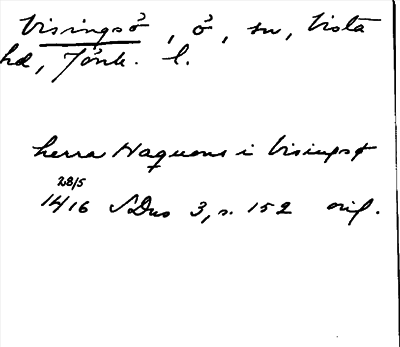 Visingsö, ö, sn, Vista
hd, Jönk. l.
herra Haquons i Visingsø
28/5
1416 SDns 3, s. 152 orig.